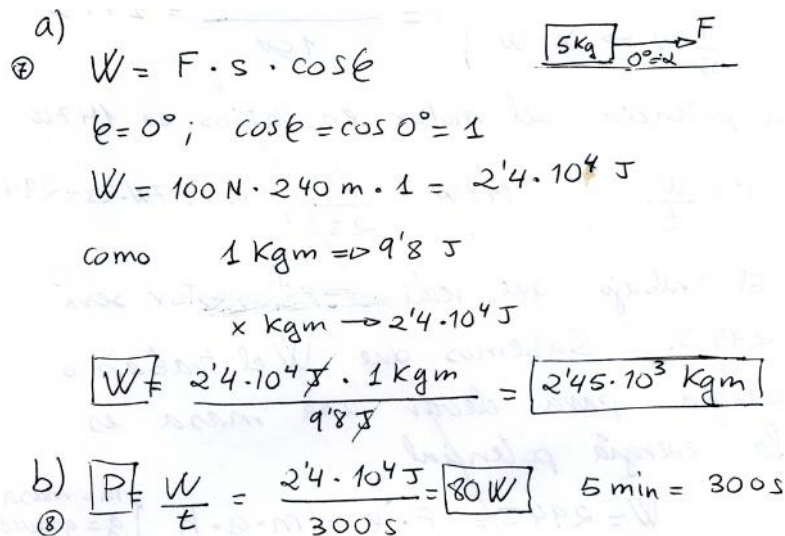 a)
5Kg F
0°=α
⑦ W = F · s · cosφ
φ = 0° ; cosφ = cos 0° = 1
W = 100 N · 240 m · 1 = 2'4 · 10⁴ J
como 1 Kgm => 9'8 J
x Kgm → 2'4 · 10⁴ J
W = 2'4 · 10⁴ J · 1 kgm / 9'8 J = 2'45 · 10³ Kgm
b) ⑧ P = W / t = 2'4 · 10⁴ J / 300 s = 80 W 5 min = 300 s